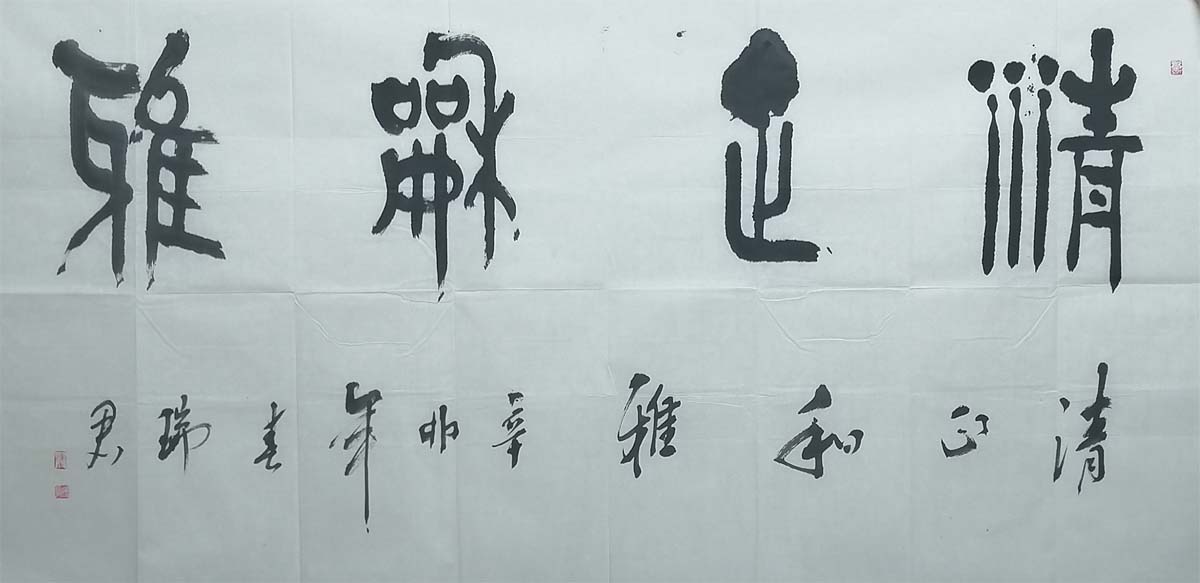 清正龢雅
清正和雅辛卯年春瑞君